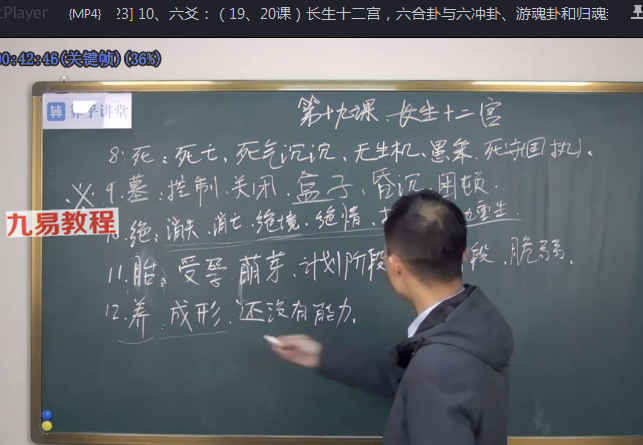 Player {MP4} 23] 10、六爻：（19、20课）长生十二宫，六合卦与六冲卦、游魂卦和归魂
0:42:46(关键帧)(36%)
讲堂
第十九课 长生十二宫
8.死：死亡、死气沉沉、无生机、愚笨、死守固执、
※9.墓、控制、关闭、盒子、昏沉、困顿.
九易教程
绝：消失、消亡、绝境、绝情、重生.
11.胎：受孕、萌芽、计划阶段、段、脆弱.
12.养、成形、还没有能力.